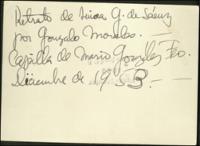 Retrato de Luisa G. de Sáenz
por Gonzalo Morales. —
Capilla de Mario González Feo.
Diciembre de 1953. —